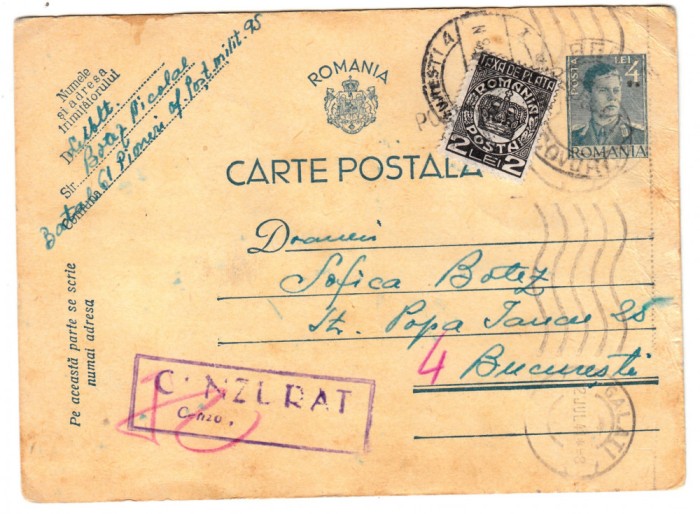 Numele
și adresa
trimițătorului
D. Sublt.
Botez Nicolae
Str.
Comuna
Batal. 61 Pionieri of. Post. milit. 95
ROMANIA
CARTE POSTALA
TAXA DE PLATA
ROMANIA
POSTA
2 LEI 2
BUCUREȘTI 4
POSTA LEI
4
ROMANIA
Doamnei
Sofica Botez
St. Popa Iancu 25
4 București
Pe această parte se scrie
numai adresa
CENZURAT
GALATI